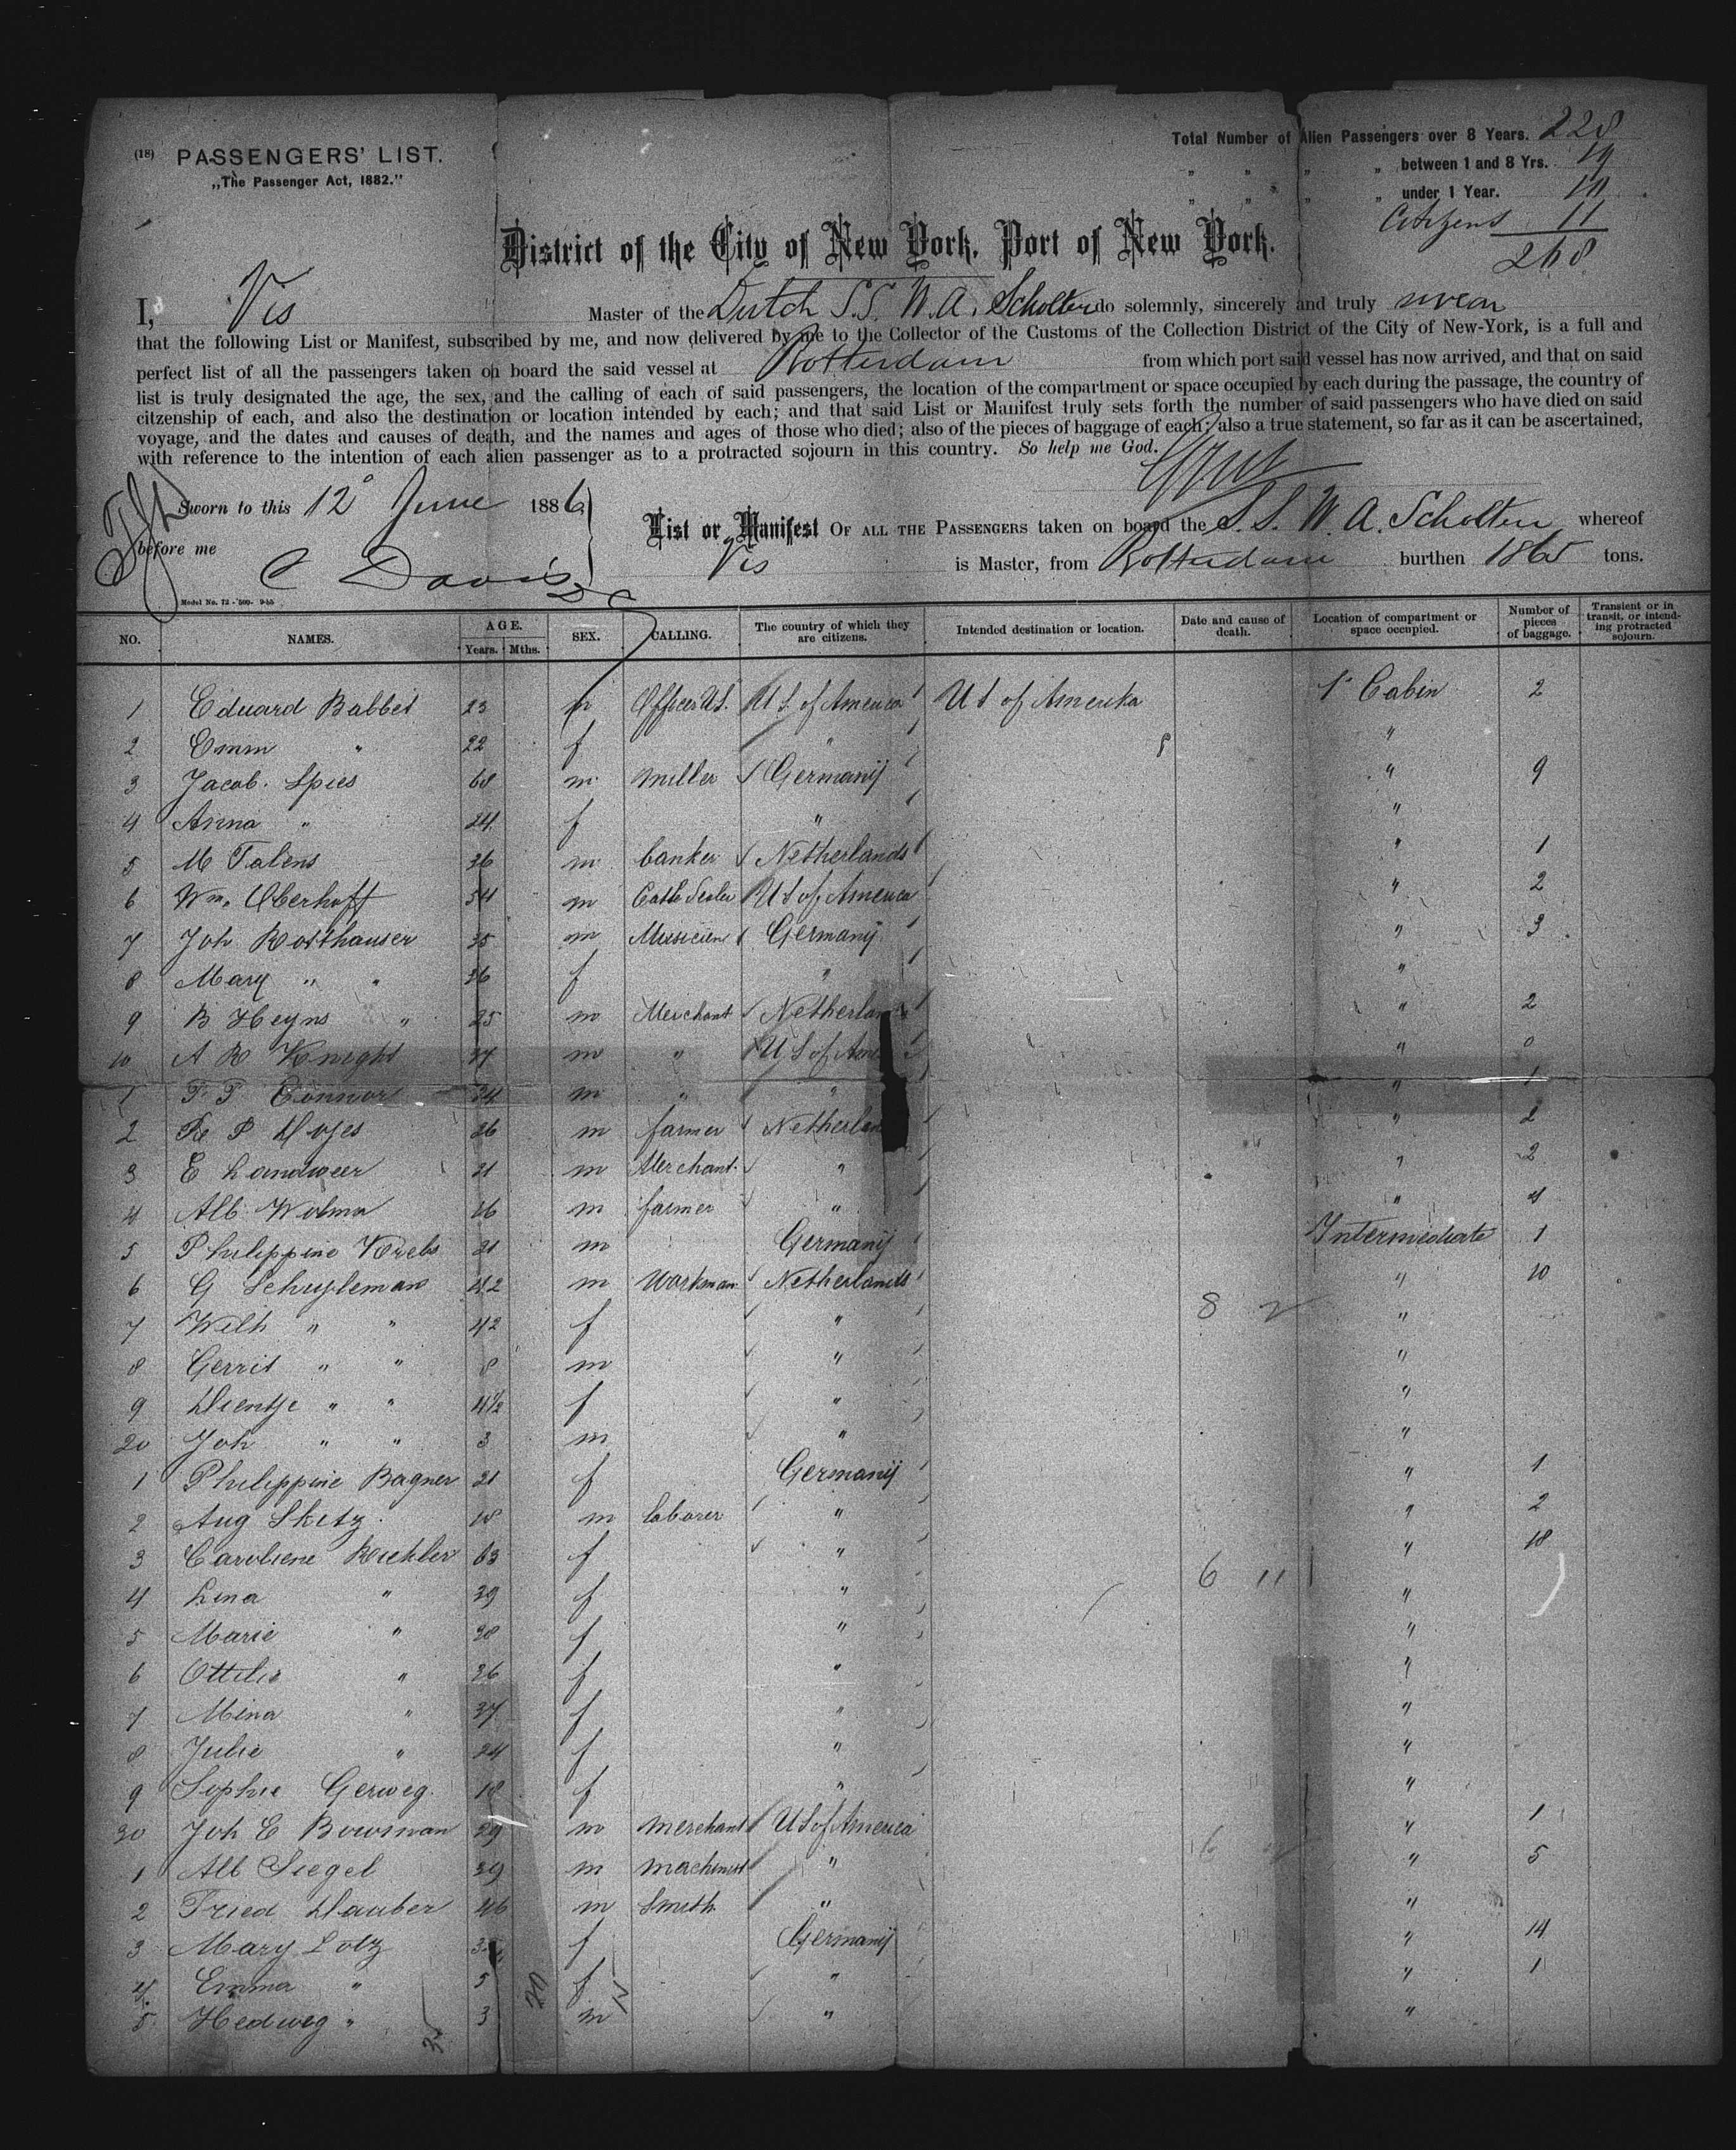 (18) PASSENGERS' LIST.
„The Passenger Act, 1882."
Total Number of Alien Passengers over 8 Years. 228
„ „ „ „ between 1 and 8 Yrs. 19
„ „ „ „ under 1 Year. 10
Citizens 11
268
District of the City of New York, Port of New York.
I, Vis Master of the Dutch S.S. W.A. Scholten do solemnly, sincerely and truly swear
that the following List or Manifest, subscribed by me, and now delivered by me to the Collector of the Customs of the Collection District of the City of New-York, is a full and
perfect list of all the passengers taken on board the said vessel at Rotterdam from which port said vessel has now arrived, and that on said
list is truly designated the age, the sex, and the calling of each of said passengers, the location of the compartment or space occupied by each during the passage, the country of
citzenship of each, and also the destination or location intended by each; and that said List or Manifest truly sets forth the number of said passengers who have died on said
voyage, and the dates and causes of death, and the names and ages of those who died; also of the pieces of baggage of each; also a true statement, so far as it can be ascertained,
with reference to the intention of each alien passenger as to a protracted sojourn in this country. So help me God.
Sworn to this 12 June 1886
before me C Davis
List or Manifest OF ALL THE PASSENGERS taken on board the S.S. W.A. Scholten whereof
Vis is Master, from Rotterdam burthen 1865 tons.
Model No. 12 - 500-
NO. NAMES. AGE. Years. Mths. SEX. CALLING. The country of which they are citizens. Intended destination or location. Date and cause of death. Location of compartment or space occupied. Number of pieces of baggage. Transient or in transit, or intending protracted sojourn.
1 Eduard Babbet 23 m Officer U.S. U S of America U S of Amerika 1 Cabin 2
2 Emm " 22 f " "
3 Jacob. Spies 68 m miller Germanij " 9
4 Anna " 24 f " "
5 M Talens 36 m banker Netherlands " 1
6 Wm. Oberhoff 54 m U S of America " 2
7 Joh Rotthauser 35 m Musicien Germanij " 3
8 Mary " " 36 f " "
9 B Heyns " 25 m Merchant " 2
10 A R Knight 37 m " U S of " 0
1 F T Connor 34 m " " " 1
2 R P Hojes 26 m farmer " 2
3 E Landweer 21 m Merchant " " 2
4 Alb Wolma 26 m farmer " " 4
5 Philippine Krebs 21 m Germanij Intermediate 1
6 G Schuyleman 42 m Workman Netherlands " 10
7 Wilh " " 42 f " 8 2 "
8 Gerrit " " 8 m " "
9 Dientje " " 4½ f " "
20 Joh " " 3 m " "
1 Philippine Bagner 21 f Germanij " 1
2 Aug Sketz 18 m laborer " " 2
3 Caroliene Riehler 63 f " " 18
4 Lina " 39 f " 6 11 "
5 Marie " 28 f " "
6 Ottilie " 26 f " "
7 Mina " 37 f " "
8 Julie " 24 f " "
9 Sophie Gerweg 18 f " "
30 Joh E Bowsman 29 m merchant U S of America " 1
1 Alb Siegel 39 m machinist " " 5
2 Fried Hauber 46 m Smith " "
3 Mary Lotz f Germanij " 14
4 Emma " 5 f " " 1
5 Hedweg " 3 m " "